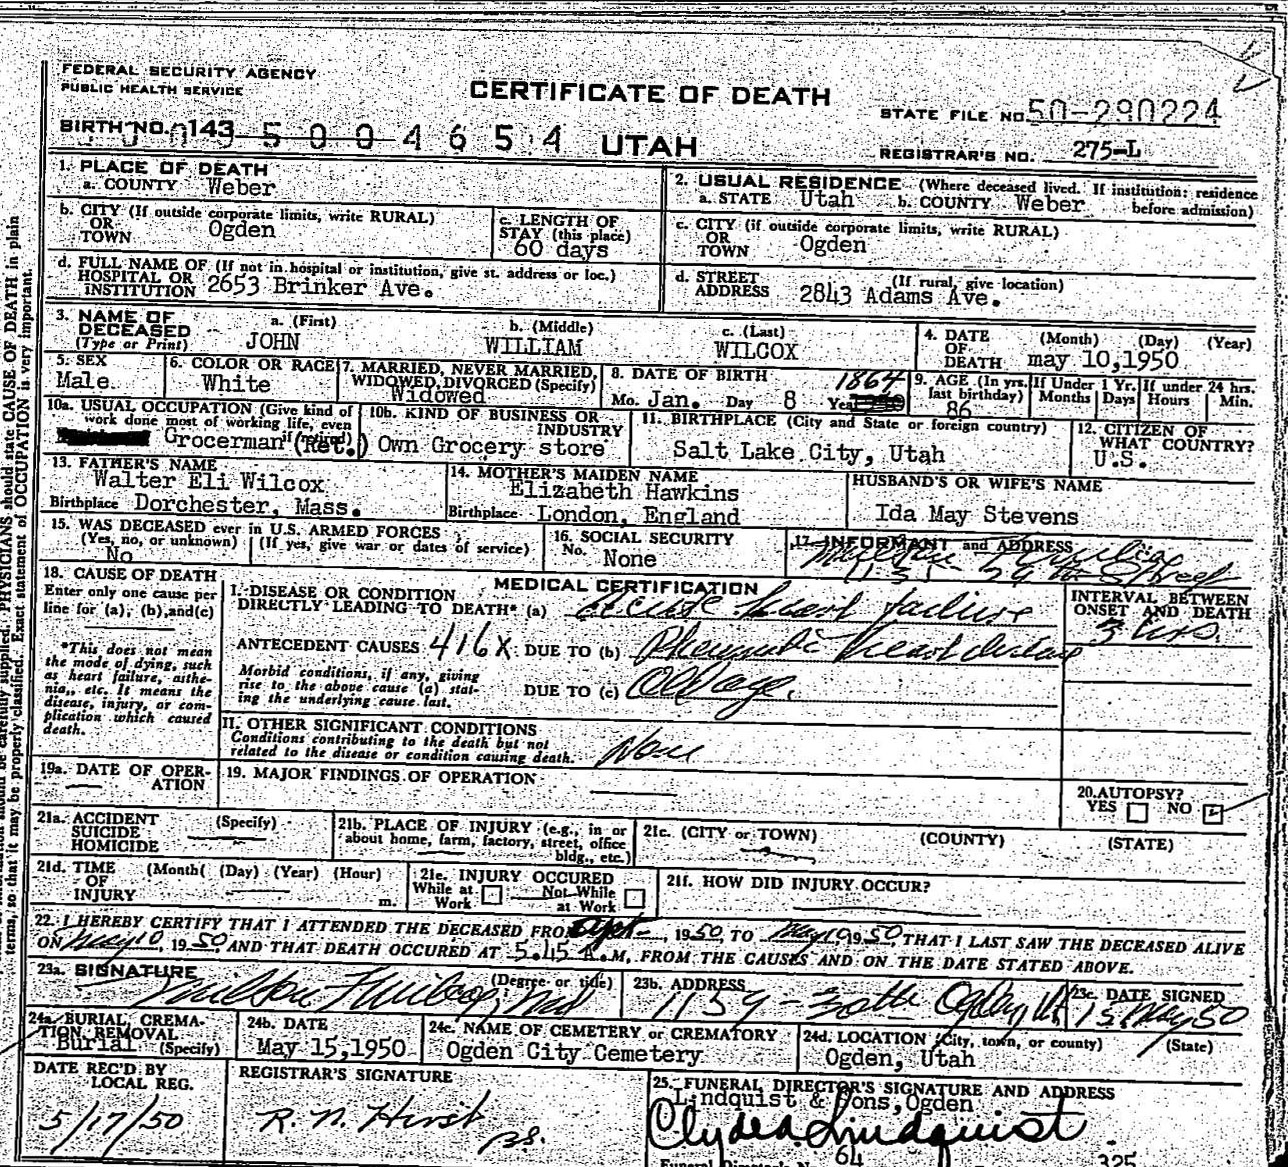 FEDERAL SECURITY AGENCY
PUBLIC HEALTH SERVICE
CERTIFICATE OF DEATH
STATE FILE NO. 50-290224
BIRTH NO. 143 5004654 UTAH
REGISTRAR'S NO. 275-L
1. PLACE OF DEATH
a. COUNTY Weber
2. USUAL RESIDENCE (Where deceased lived. If institution: residence before admission)
a. STATE Utah b. COUNTY Weber
b. CITY (If outside corporate limits, write RURAL)
OR TOWN Ogden
c. LENGTH OF STAY (this place)
60 days
c. CITY (if outside corporate limits, write RURAL)
OR TOWN Ogden
d. FULL NAME OF (If not in hospital or institution, give st. address or loc.)
HOSPITAL OR INSTITUTION 2653 Brinker Ave.
d. STREET ADDRESS (If rural, give location)
2843 Adams Ave.
3. NAME OF DECEASED (Type or Print)
a. (First) b. (Middle) c. (Last)
JOHN WILLIAM WILCOX
4. DATE OF DEATH (Month) (Day) (Year)
may 10,1950
5. SEX
Male
6. COLOR OR RACE
White
7. MARRIED, NEVER MARRIED, WIDOWED, DIVORCED (Specify)
Widowed
8. DATE OF BIRTH 1864
Mo. Jan. Day 8 Year
9. AGE (In yrs. last birthday) If Under 1 Yr. Months Days If under 24 hrs. Hours Min.
86
10a. USUAL OCCUPATION (Give kind of work done most of working life, even if retired)
Grocerman (Ret.)
10b. KIND OF BUSINESS OR INDUSTRY
Own Grocery store
11. BIRTHPLACE (City and State or foreign country)
Salt Lake City, Utah
12. CITIZEN OF WHAT COUNTRY?
U.S.
13. FATHER'S NAME
Walter Eli Wilcox
Birthplace Dorchester, Mass.
14. MOTHER'S MAIDEN NAME
Elizabeth Hawkins
Birthplace London, England
HUSBAND'S OR WIFE'S NAME
Ida May Stevens
15. WAS DECEASED ever in U.S. ARMED FORCES
(Yes, no, or unknown) (If yes, give war or dates of service)
No
16. SOCIAL SECURITY No.
None
17. INFORMANT and ADDRESS
Street
18. CAUSE OF DEATH
Enter only one cause per line for (a), (b), and (c)
*This does not mean the mode of dying, such as heart failure, asthenia, etc. It means the disease, injury, or complication which caused death.
MEDICAL CERTIFICATION
I. DISEASE OR CONDITION
DIRECTLY LEADING TO DEATH* (a) acute heart failure
INTERVAL BETWEEN ONSET AND DEATH
3 hrs.
ANTECEDENT CAUSES 416X DUE TO (b) Rheumatic Heart disease
Morbid conditions, if any, giving rise to the above cause (a) stating the underlying cause last.
DUE TO (c) Old age.
II. OTHER SIGNIFICANT CONDITIONS
Conditions contributing to the death but not related to the disease or condition causing death.
None
19a. DATE OF OPERATION
19. MAJOR FINDINGS OF OPERATION
20. AUTOPSY?
YES NO
21a. ACCIDENT SUICIDE HOMICIDE (Specify)
21b. PLACE OF INJURY (e.g., in or about home, farm, factory, street, office bldg., etc.)
21c. (CITY or TOWN) (COUNTY) (STATE)
21d. TIME OF INJURY (Month) (Day) (Year) (Hour) m.
21e. INJURY OCCURED
While at Work Not While at Work
21f. HOW DID INJURY OCCUR?
22. I HEREBY CERTIFY THAT I ATTENDED THE DECEASED FROM Apr. , 1950, TO May 10, 1950, THAT I LAST SAW THE DECEASED ALIVE
ON May 10, 1950 AND THAT DEATH OCCURED AT 5:45 A.M, FROM THE CAUSES AND ON THE DATE STATED ABOVE.
23a. SIGNATURE (Degree or title)
23b. ADDRESS
Ogden Ut
23c. DATE SIGNED
15 May 50
24a. BURIAL, CREMATION, REMOVAL (Specify)
Burial
24b. DATE
May 15,1950
24c. NAME OF CEMETERY or CREMATORY
Ogden City Cemetery
24d. LOCATION (City, town, or county) (State)
Ogden, Utah
DATE REC'D BY LOCAL REG.
5/17/50
REGISTRAR'S SIGNATURE
R. N. Hirst
25. FUNERAL DIRECTOR'S SIGNATURE AND ADDRESS
Lindquist & Sons, Ogden
Clyde A. Lindquist
64
325